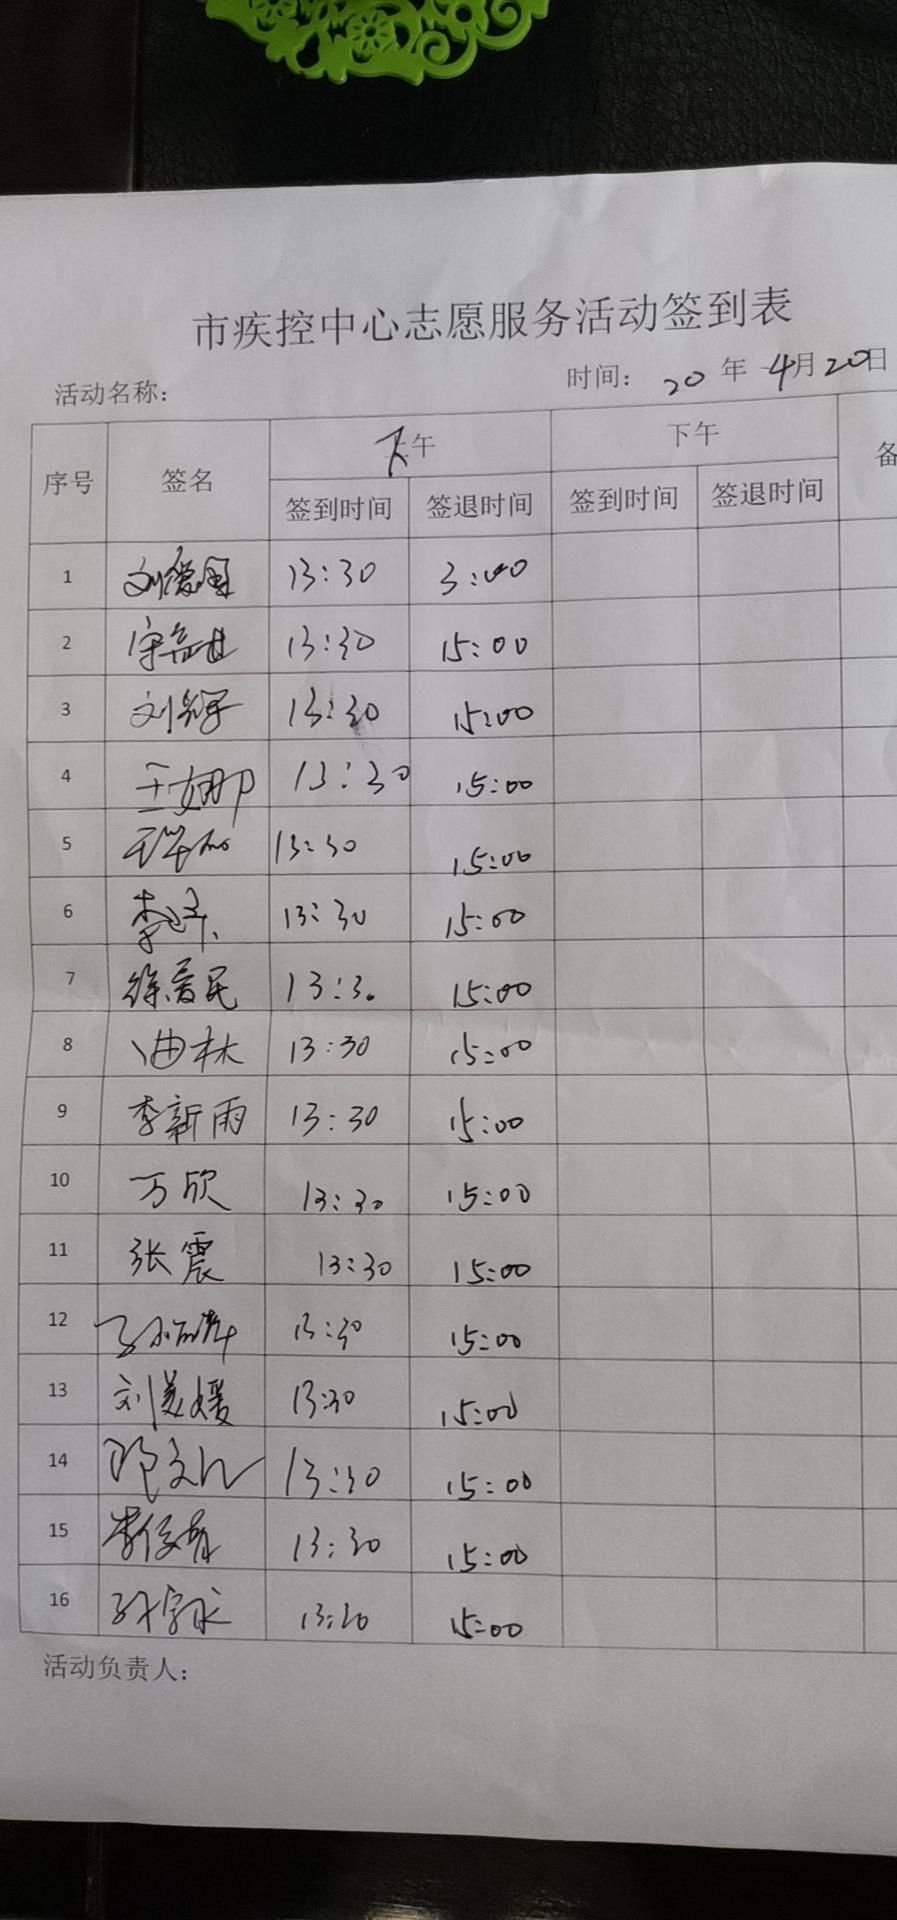 市疾控中心志愿服务活动签到表
活动名称: 时间: 20 年 4月20日
序号 签名 下午 下午 备
签到时间 签退时间 签到时间 签退时间
1 13:30 3:00
2 13:30 15:00
3 刘 13:30 15:00
4 王娜 13:30 15:00
5 13:30 15:00
6 李 13:30 15:00
7 徐爱民 13:30 15:00
8 曲林 13:30 15:00
9 李新雨 13:30 15:00
10 万欣 13:30 15:00
11 张震 13:30 15:00
12 孙 13:30 15:00
13 刘美媛 13:30 15:00
14 13:30 15:00
15 李俊 13:30 15:00
16 孙 13:30 15:00
活动负责人: